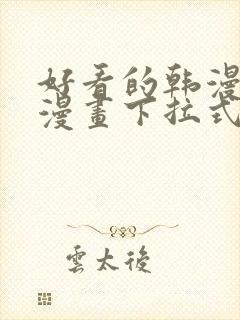 好看的韩漫
漫畫下拉式
雲太後